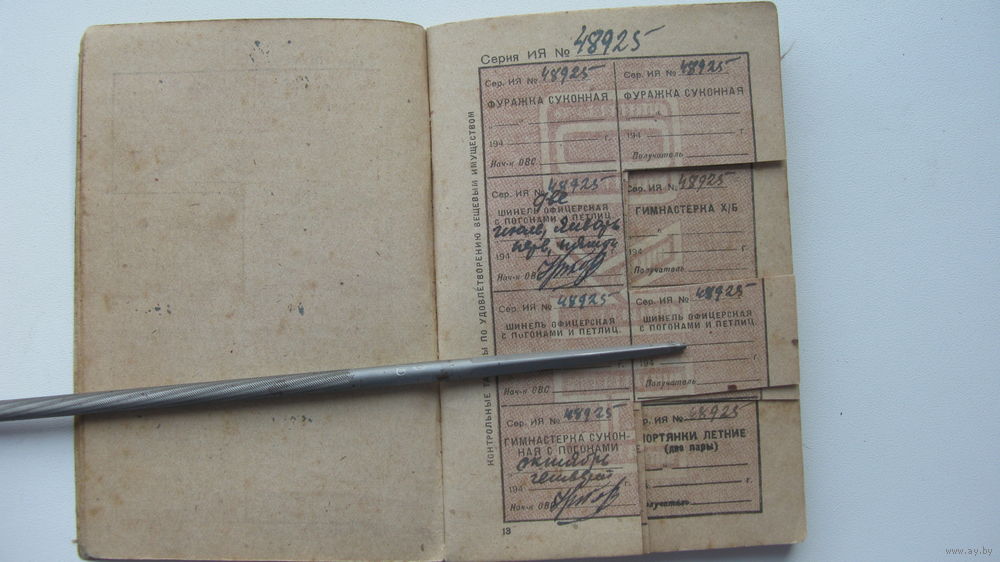 Серия ИЯ № 48925
КОНТРОЛЬНЫЕ ТА ПО УДОВЛЕТВОРЕНИЮ ВЕЩЕВЫМ ИМУЩЕСТВОМ
Сер. ИЯ № 48925
ФУРАЖКА СУКОННАЯ
" "
194 г.
Нач-к ОВС
Сер. ИЯ № 48925
ФУРАЖКА СУКОННАЯ
" "
194 г.
Получатель
Сер. ИЯ № 48925
две
ШИНЕЛЬ ОФИЦЕРСКАЯ
С ПОГОНАМИ И ПЕТЛИЦ.
январь
194
Нач-к ОВ
Сер. ИЯ № 48925
ГИМНАСТЕРКА Х/Б
194 г.
Получатель
Сер. ИЯ № 48925
ШИНЕЛЬ ОФИЦЕРСКАЯ
С ПОГОНАМИ И ПЕТЛИЦ.
Нач-к ОВС
Сер. ИЯ № 48925
ШИНЕЛЬ ОФИЦЕРСКАЯ
С ПОГОНАМИ И ПЕТЛИЦ.
194 г.
Получатель
Сер. ИЯ № 48925
ГИМНАСТЕРКА СУКОН-
НАЯ С ПОГОНАМИ
октябрь
194
Нач-к ОВС
р. ИЯ № 48925
ОРТЯНКИ ЛЕТНИЕ
(две пары)
г.
лучатель
13
www.ay.by